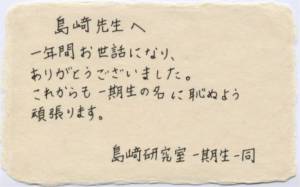 島﨑先生へ
一年間お世話になり、
ありがとうございました。
これからも一期生の名に恥ぬよう
頑張ります。
島﨑研究室 一期生一同